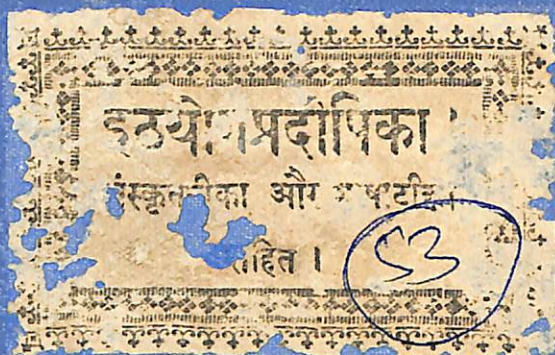 हठयोगप्रदीपिका ।
संस्कृतटीका और भाषाटीका
सहित ।
53